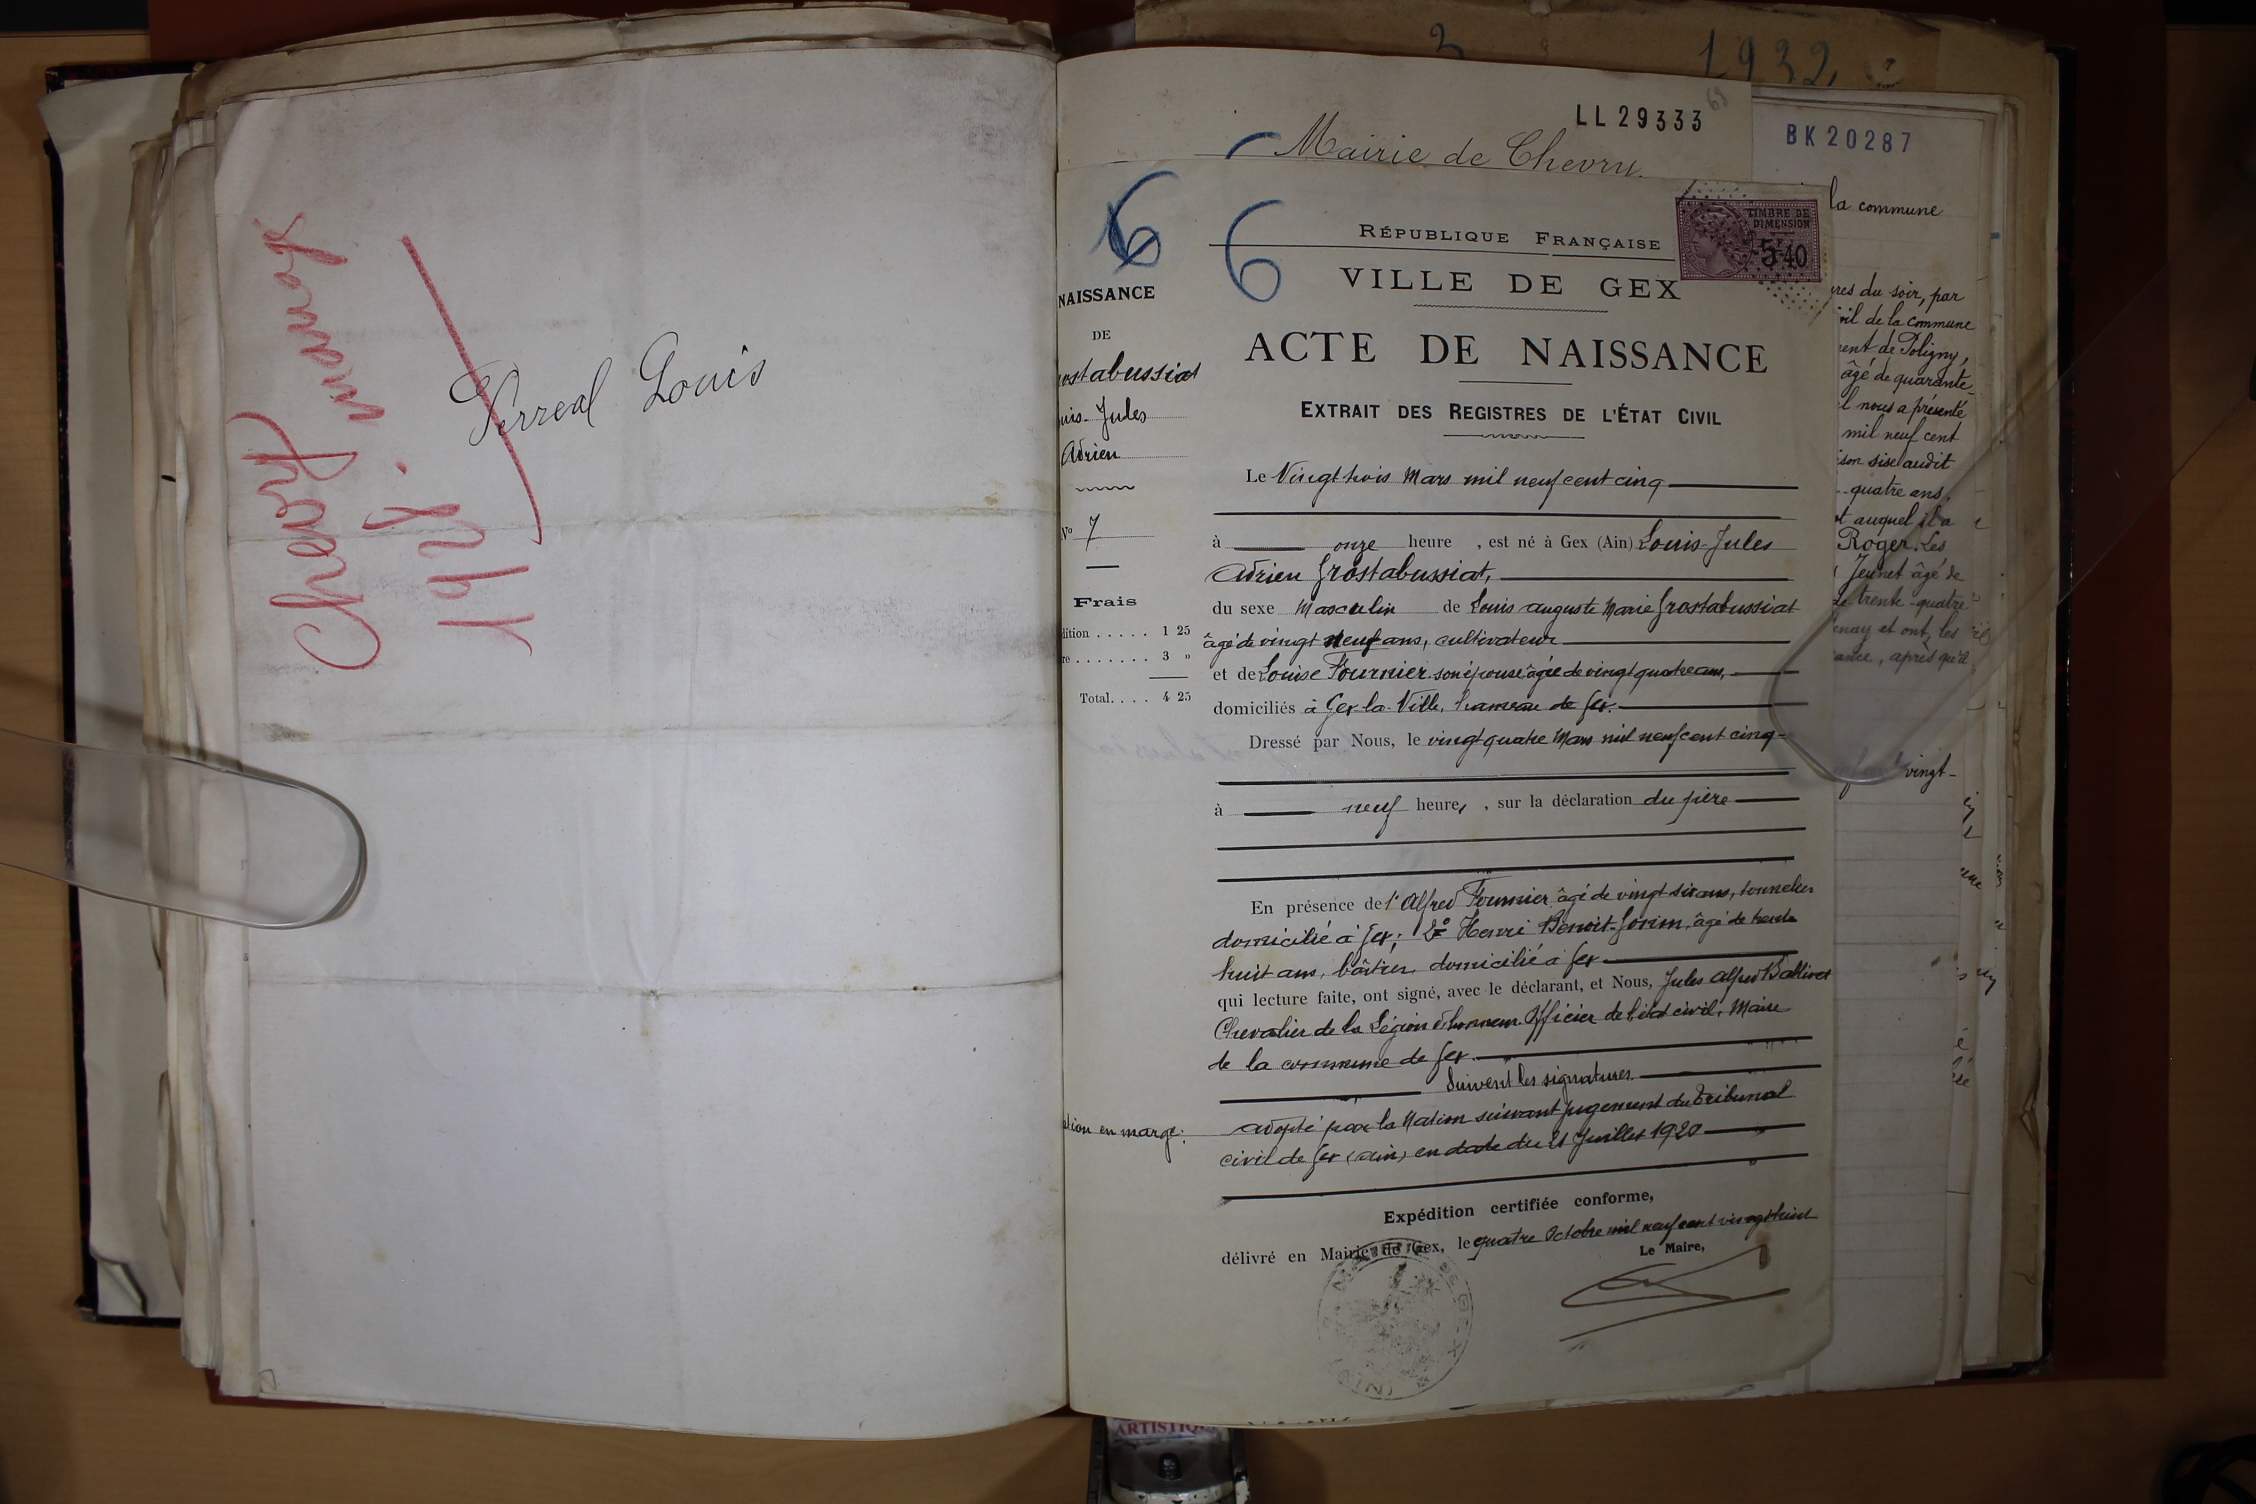 Chevry mariage
N° 1
Perreal Louis
3
1932
LL 29333
69
Mairie de Chevry
BK 20287
6
6
NAISSANCE
DE
ostabussiat
uis-Jules
Adrien
N° 7
Frais
dition..... 1 25
re....... 3 "
Total.... 4 25
TIMBRE DE
DIMENSION
5.40
RÉPUBLIQUE FRANÇAISE
VILLE DE GEX
ACTE DE NAISSANCE
EXTRAIT DES REGISTRES DE L'ÉTAT CIVIL
Le Vingt trois Mars mil neuf cent cinq
à onze heure , est né à Gex (Ain) Louis-Jules
Adrien Grostabussiat,
du sexe Masculin de Louis Auguste Marie Grostabussiat
âgé de vingt neuf ans, cultivateur
et de Louise Fournier son épouse âgée de vingt quatre ans,
domiciliés à Gex-la-Ville, hameau de Gex.
Dressé par Nous, le vingt quatre Mars mil neuf cent cinq
à neuf heures , sur la déclaration du père
En présence de 1° Alfred Fournier âgé de vingt six ans, tonnelier
domicilié à Gex; 2° Henri Benoit-Gonin, âgé de trente
huit ans, domicilié à Gex
qui lecture faite, ont signé, avec le déclarant, et Nous, Jules Alfred
Chevalier de la Légion d'honneur Officier de l'état civil, Maire
de la commune de Gex.
Suivent les signatures.
tion en marge: adopté par la Nation suivant jugement du Tribunal
civil de Gex (Ain) en date du 21 Juillet 1920
Expédition certifiée conforme,
délivré en Mairie de Gex, le quatre Octobre mil neuf cent vingt huit
Le Maire,
la commune
res du soir, par
vil de la commune
ent de Poligny,
âgé de quarante-
l nous a présenté
mil neuf cent
ison sise audit
quatre ans,
t auquel il a
Roger. Les
Jeunet âgé de
de trente-quatre
enay et ont, les
ance, après qu'il
vingt-
ARTISTIQUE